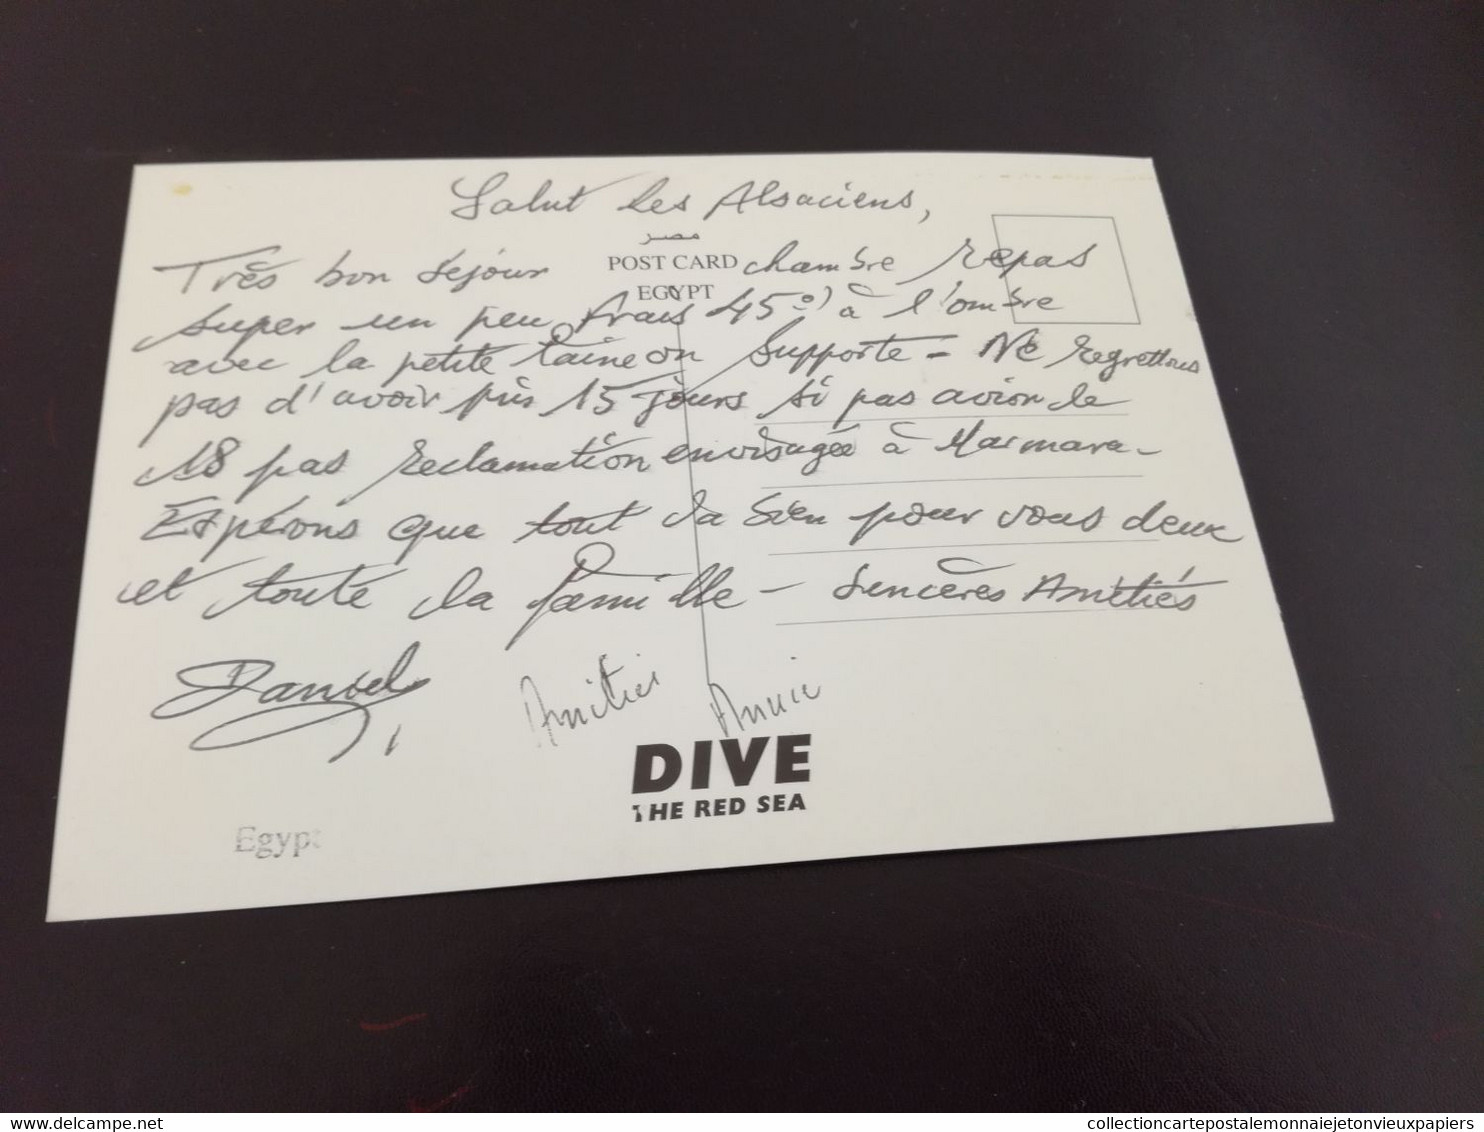 Salut les Alsaciens,
مصر
POST CARD
EGYPT
Très bon séjour chambre repas
super un peu frais 45°) à l'ombre
avec la petite laine on supporte - Ne regrettons
pas d'avoir pris 15 jours si pas avion le
18 pas reclamation envisagée à Marmara -
Espérons que tout va bien pour vous deux
et toute la famille - Sincères Amitiés
Daniel
Amitiés Annie
DIVE
THE RED SEA
Egypt
collectioncartepostalemonnaiejetonvieuxpapiers